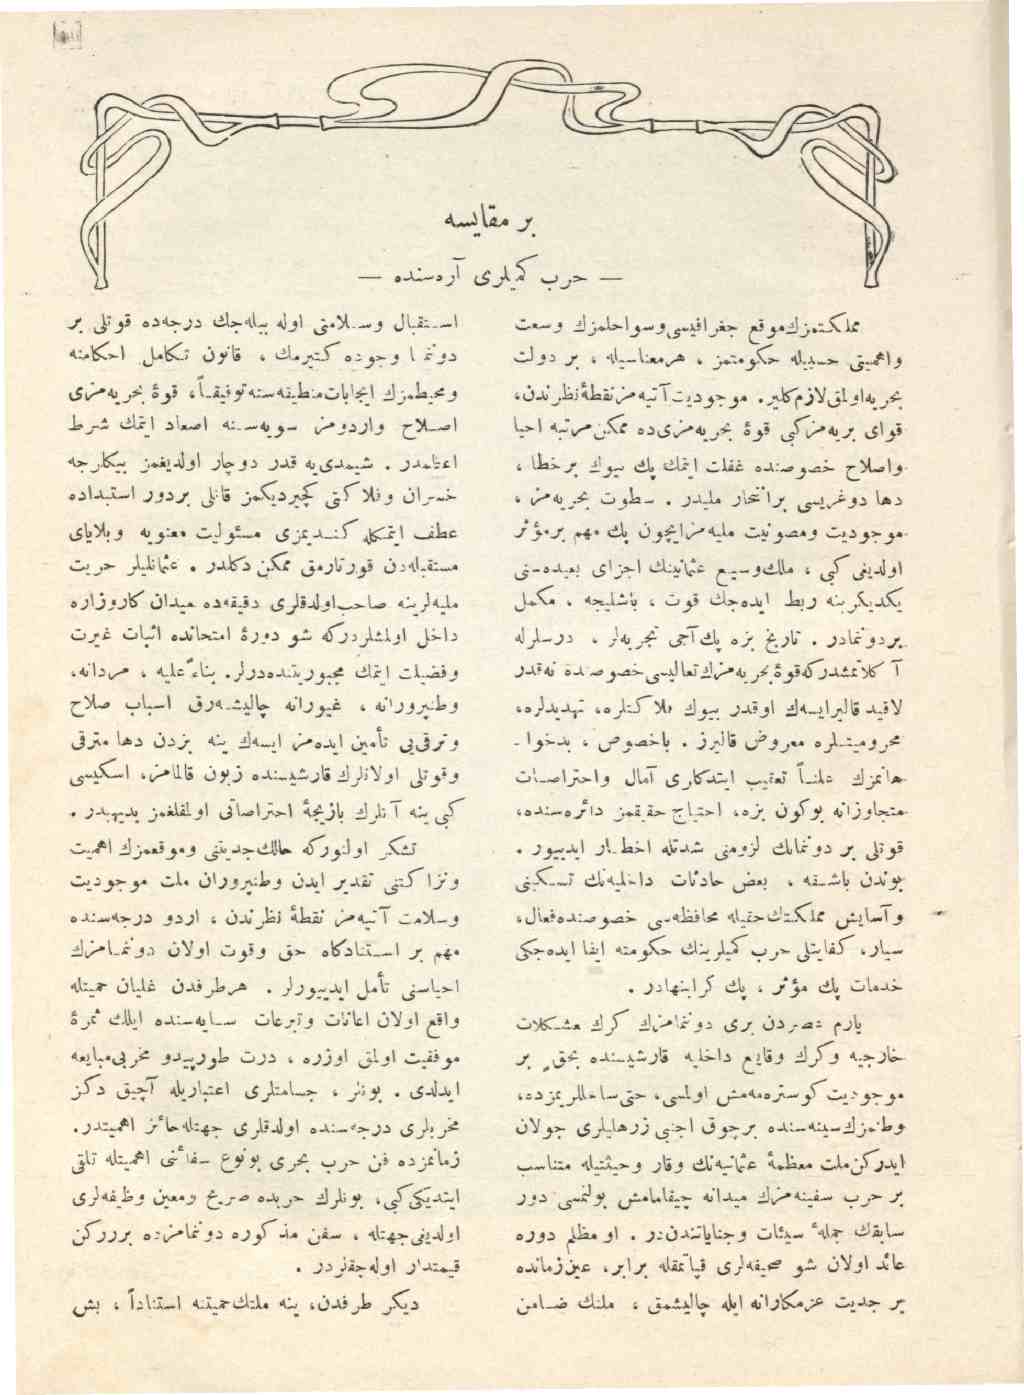 بر مقايسه
— حرب كميلرى آره‌سنده —
مملكتمزك موقع جغرافيسى وسواحلمزك وسعت
واهميتى حسبيله حكومتمز ، هرمعناسيله ، بر دولت
بحريه اولمق لازم كلير. موجوديت آتيه‌مز نقطهٔ نظرندن،
قواى بريه‌مز كبى قوهٔ بحريه‌مزى ده ممكن مرتبه احيا
واصلاح خصوصنده غفلت ايتمك پك بيوك برخطا ،
دها دوغريسى برانتحار مليدر . سطوت بحريه‌مز ،
موجوديت ومصونيت مليه‌مز ايچون پك مهم برمؤثر
اولديغى كبى ، ملك وسيع عثمانينك اجزاى بعيده‌سنى
يكديكرينه ربط ايده‌جك قوت ، باشليجه ، مكمل
بردونمادر . تاريخ بزه پك آجى تجربه‌لر ، درسلرله
آ كلاتمشدركه قوهٔ بحريه‌مزك تعاليسى خصوصنده نه‌قدر
لاقيد قالير ايسه‌ك اوقدر بيوك فلا كتلره، تهديدلره،
محروميتلره معروض قاليرز . باخصوص ، بدخوا ـ
هانمزك علناً تعقيب ايتدكارى آمال واحتراصات
متجاوزانه بوكون بزه، احتياج حقيقمز دائره‌سنده،
قوتلى بر دونمانك لزومنى شدتله اخطار ايدييور .
بوندن باشقه ، بعض حادثات داخليه‌نك تسكينى
و آسايش مملكتك حقيله محافظه‌سى خصوصنده فعال،
سيار، كفايتلى حرب كميلرينك حكومته ايفا ايده‌جكى
خدمات پك مؤثر ، پك كرانبهادر .
يارم عصردن برى دونمامزك كرك مشكلات
خارجيه وكرك وقايع داخليه قارشيسنده بحق بر
موجوديت كوستره‌مه‌مش اولمسى، حتى ساحللريمزده،
وطنمزك سينه‌سنده برچوق اجنبى زرهليلرى جولان
ايدركن ملت معظمهٔ عثمانيه‌نك وقار وحيثيتيله متناسب
بر حرب سفينه‌مزك ميدانه چيقامامش بولنمسى دور
سابقك جملهٔ سيئات وجناياتندندر . او مظلم دوره
عائد اولان شو صحيفه‌لرى قپاتمقله برابر، عين زمانده
بر جديت عزمكارانه ايله چاليشمق ، ملتك ضامن
استقبال وسلامتى اوله بيله‌جك درجه‌ده قوتلى بر
دونما وجوده كتيرمك ، قانون تكامل احكامنه
ومحيطمزك ايجابات منطيقه‌سنه توفيقاً، قوهٔ بحريه‌مزى
اصلاح واردومز سويه‌سنه اصعاد ايتمك شرط
اعظمدر . شيمدى‌يه قدر دوچار اولديغمز بيكلرجه
خسران وفلا كتى كچيرديكمز قانلى بردور استبداده
عطف ايتمكله كنديمزى مسئوليت معنويه وبلاياى
مستقبله‌دن قورتارمق ممكن دكلدر . عثمانليلر حريت
مليه‌لرينه صاحب اولدقلرى دقيقه‌ده ميدان كارزاره
داخل اولمشلردركه شو دورهٔ امتحانده اثبات غيرت
وفضيلت ايتمك مجبوريتنده‌درلر. بناءً عليه ، مردانه،
وطنپرورانه ، غيورانه چاليشه‌رق اسباب صلاح
وترقى‌يى تأمين ايده‌مز ايسه‌ك ينه بزدن دها مترقى
وقوتلى اولانلرك قارشيسنده زبون قالمامز، اسكيسى
كبى ينه آنلرك بازيچهٔ احتراصاتى اولمقلغمز بديهيدر .
تشكر اولنوركه حالك جديتنى وموقعمزك اهميت
ونزاكتنى تقدير ايدن وطنپروران ملت موجوديت
وسلامت آتيه‌مز نقطهٔ نظرندن ، اردو درجه‌سنده
مهم بر استنادكاه حق وقوت اولان دونمامزك
احياسنى تأمل ايدييورلر . هرطرفدن غليان حميتله
واقع اولان اعانات وتبرعات سايه‌سنده ايلك ثمرهٔ
موفقيت اولمق اوزره ، درت طورپيدو مخربى مبايعه
ايدلدى . بونلر ، جسامتلرى اعتباريله آچيق دكز
مخربلرى درجه‌سنده اولدقلرى جهتله حائز اهميتدر.
زمانمزده فن حرب بحرى بونوع سفائنى اهميتله تلقى
ايتديكى كبى، بونلرك حربده صريح ومعين وظيفه‌لرى
اولديغى جهتله ، سفن مذكوره دونمامزده بررركن
قيمتدار اوله‌جقلردر .
ديكر طرفدن، ينه ملتك حميتنه استناداً ، بش